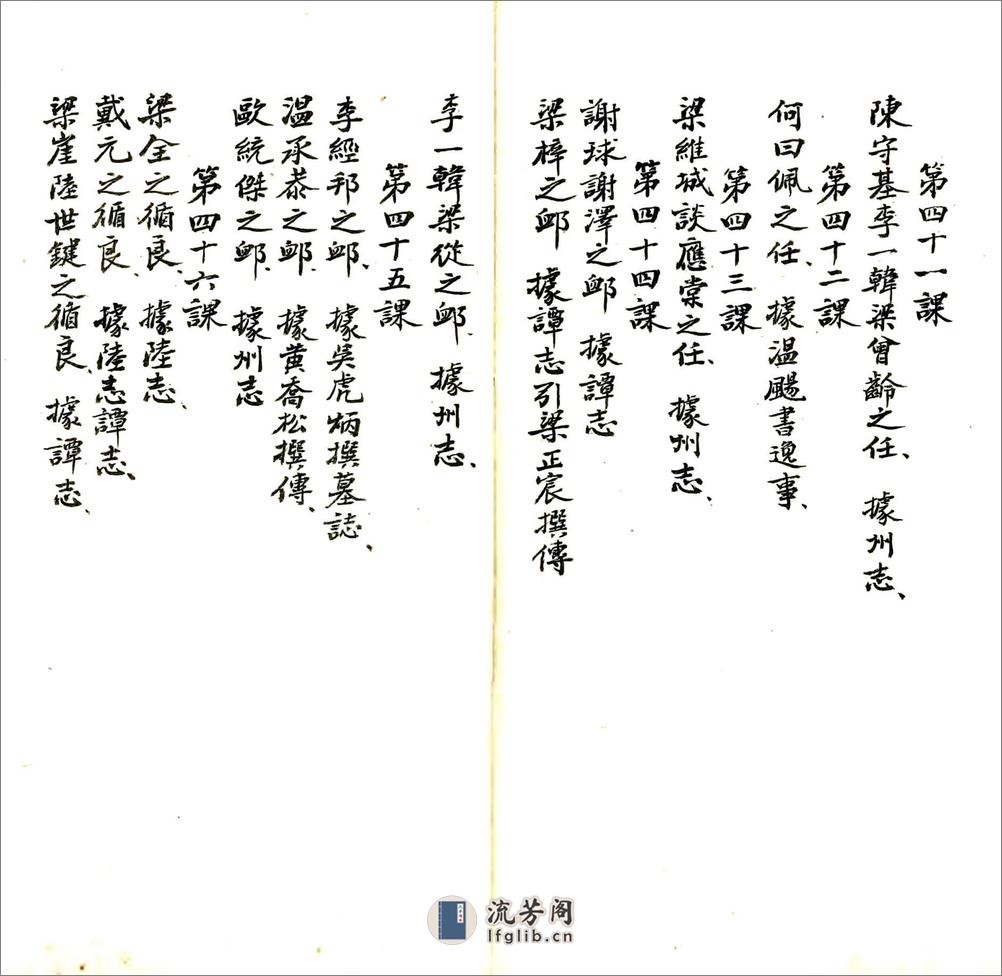 第四十一課
陳守基李一韓梁曾齡之任、 據州志、
第四十二課
何曰佩之任、 據温颺書逸事、
第四十三課
梁維城談應棠之任、 據州志、
第四十四課
謝球謝澤之䘏 據譚志
梁梓之䘏 據譚志引梁正宸撰傳
李一韓梁從之䘏、 據州志、
第四十五課
李經邦之䘏、 據吳虎炳撰墓誌、
温承恭之䘏、 據黄喬松撰傳、
歐統傑之䘏、 據州志
第四十六課
梁全之循良、 據陸志、
戴元之循良、 據陸志譚志、
梁崖陸世鍵之循良、 據譚志、
流芳阁
lfglib.cn